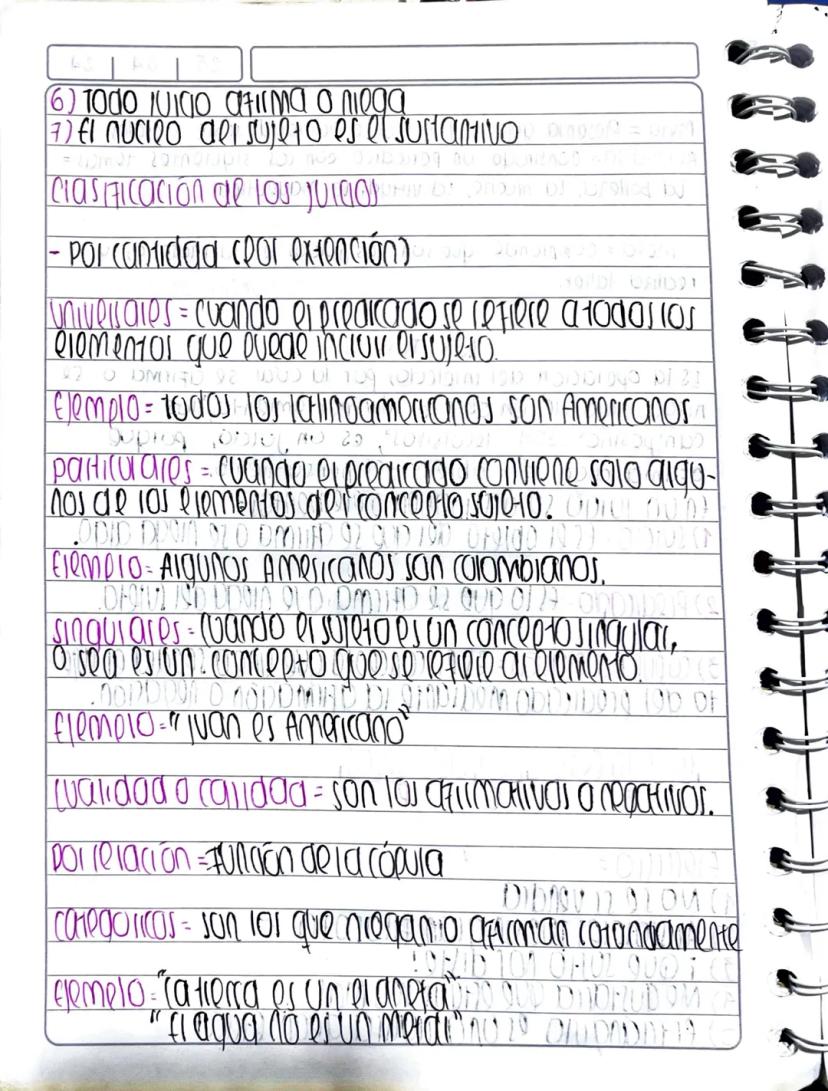 6) Todo juicio afirma o niega
7) El nucleo del sujeto es el sustantivo
Clasificación de los juicios
- por cantidad (por extención)
Universales = cuando el predicado se refiere a todos los
elementos que puede incluir el sujeto.
Ejemplo = todos los latinoamericanos son Americanos
particulares = cuando el predicado conviene solo algu-
nos de los elementos del concepto sujeto.
Ejemplo = Algunos Americanos son colombianos.
singulares = cuando el sujeto es un concepto singular,
o sea es un concepto que se refiere al elemento.
Ejemplo = "Juan es Americano"
cualidad o calidad = son los afirmativos o negativos.
por relación = función de la cópula
categoricos = son los que niegan o afirman rotundamente
Ejemplo = "la tierra es un planeta"
"El agua no es un metal"